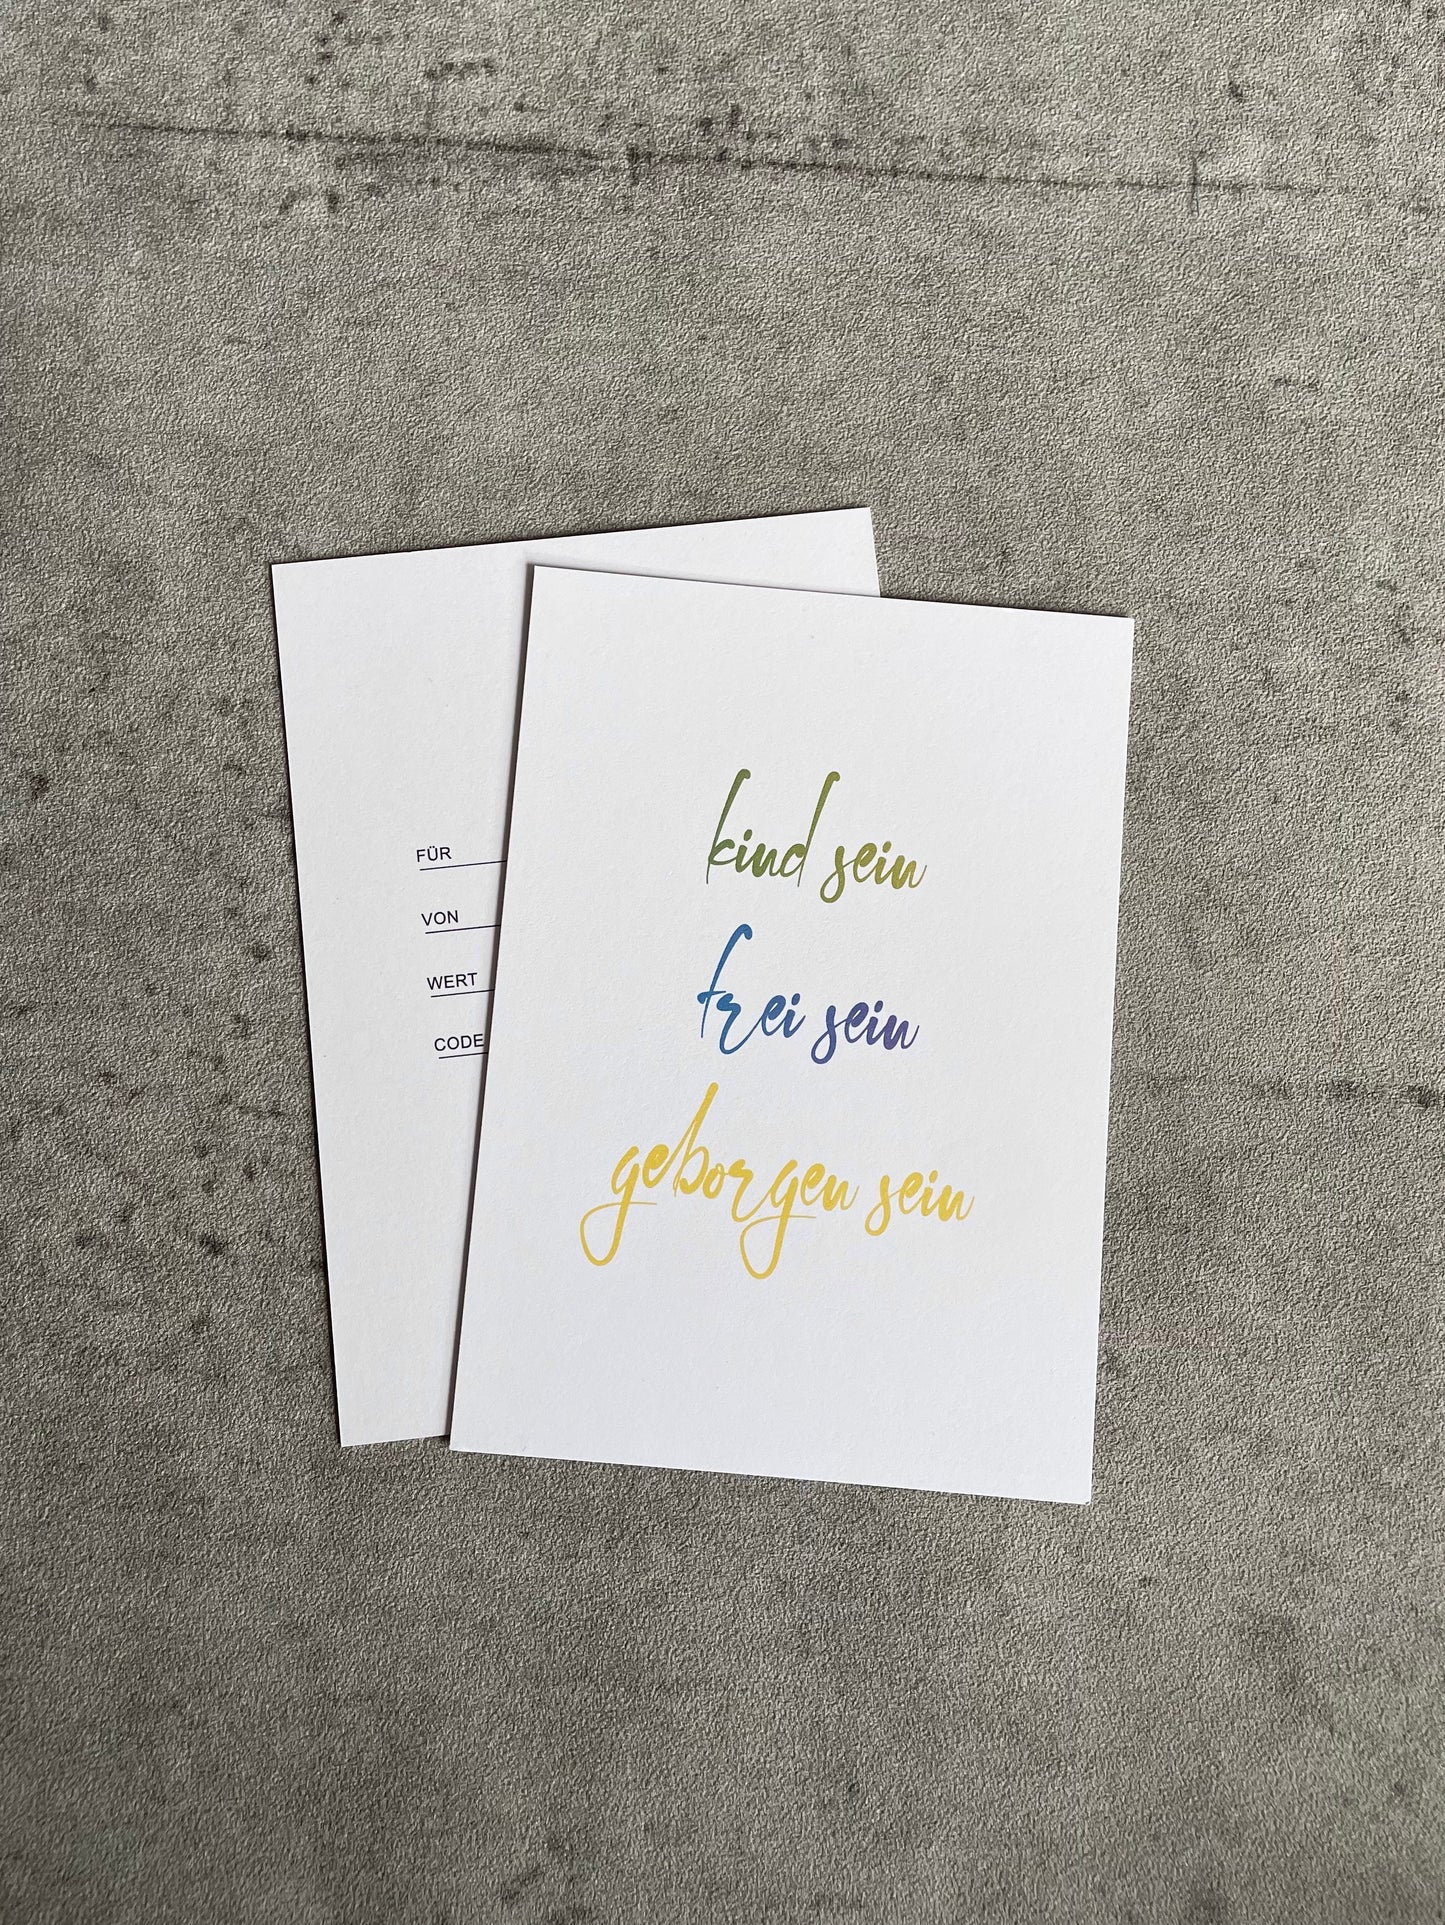 FÜR
VON
WERT
CODE
kind sein
frei sein
geborgen sein